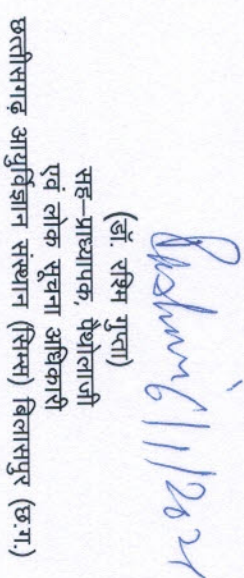 Rashmi 6/1/2021
(डॉ. रश्मि गुप्ता)
सह–प्राध्यापक, पैथोलाजी
एवं लोक सूचना अधिकारी
छत्तीसगढ़ आयुर्विज्ञान संस्थान (सिम्स) बिलासपुर (छ.ग.)